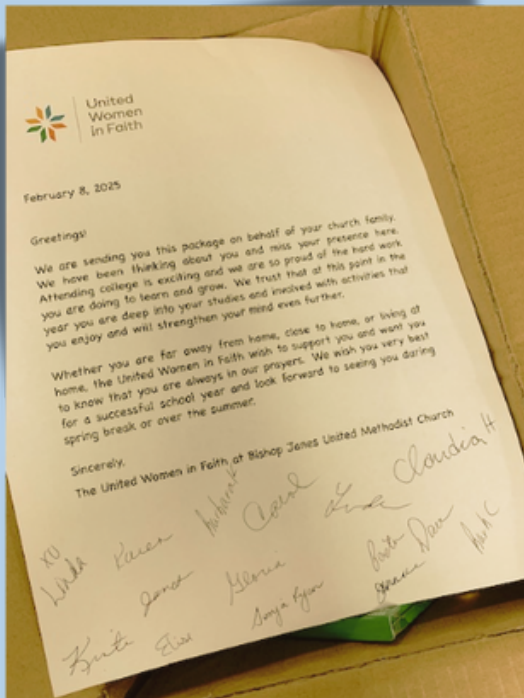 United
Women
in Faith
February 8, 2025
Greetings!
We are sending you this package on behalf of your church family.
We have been thinking about you and miss your presence here.
Attending college is exciting and we are so proud of the hard work
you are doing to learn and grow. We trust that at this point in the
year you are deep into your studies and involved with activities that
you enjoy and will strengthen your mind even further.
Whether you are far away from home, close to home, or living at
home, the United Women in Faith wish to support you and want you
to know that you are always in our prayers. We wish you very best
for a successful school year and look forward to seeing you daring
spring break or over the summer.
Sincerely,
The United Women in Faith at Bishop Janes United Methodist Church
XO
Linda
Karen
Carol
Claudia H
Janet
Gloria
Elise
Sonja Ryan